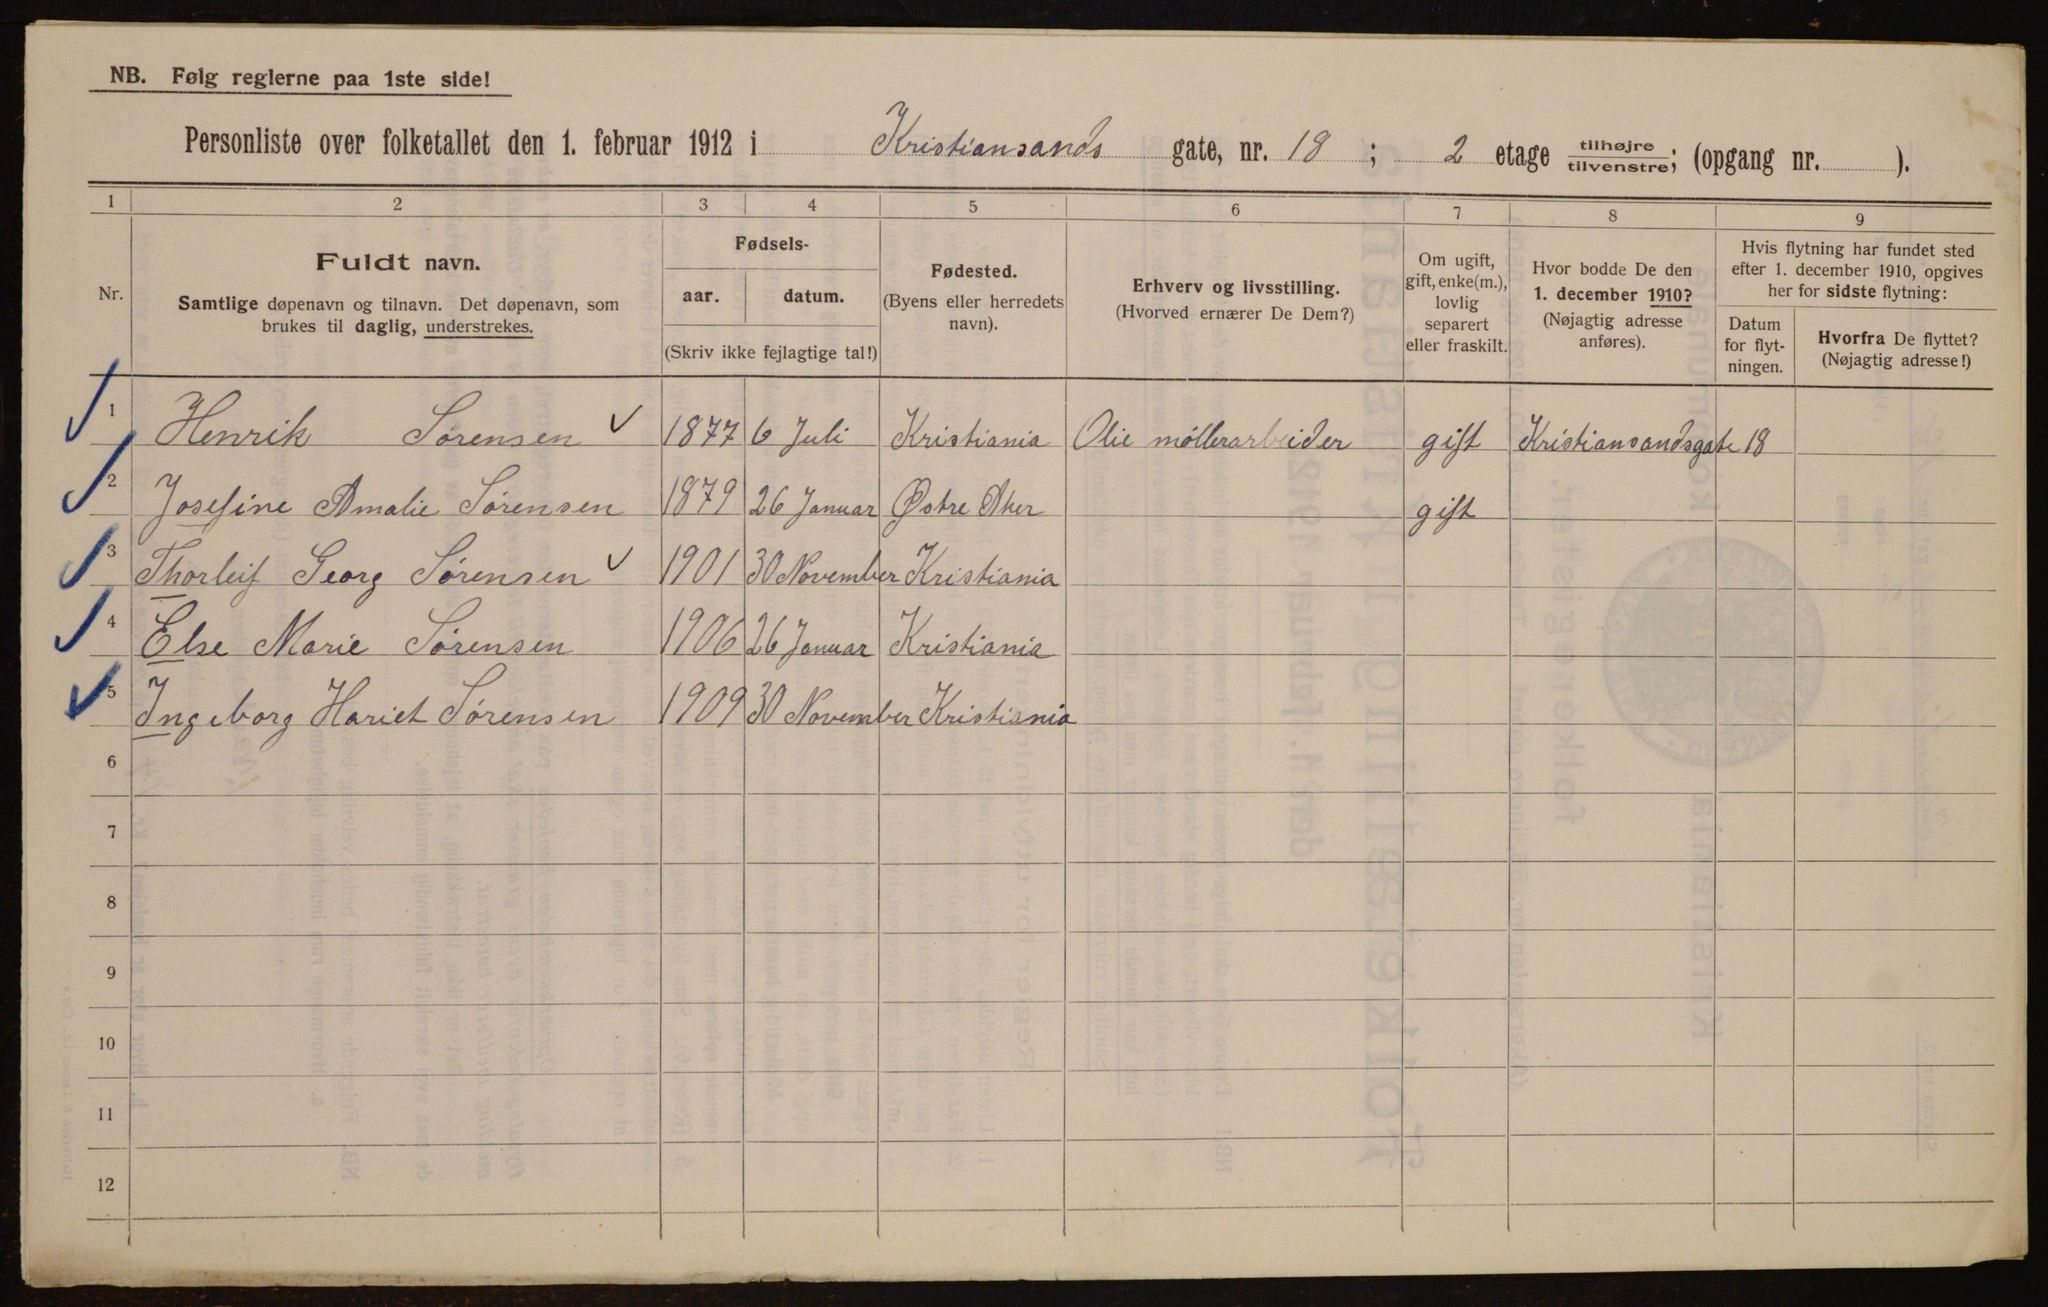 NB. Følg reglerne paa 1ste side!
Personliste over folketallet den 1. februar 1912 i Kristiansands gate, nr. 18 ; 2 etage tilhøjre/tilvenstre; (opgang nr. ).
1 2 3 4 5 6 7 8 9
Nr.
Fuldt navn.
Samtlige døpenavn og tilnavn. Det døpenavn, som
brukes til daglig, understrekes.
Fødsels-
aar. datum.
(Skriv ikke fejlagtige tal!)
Fødested.
(Byens eller herredets
navn).
Erhverv og livsstilling.
(Hvorved ernærer De Dem?)
Om ugift,
gift, enke(m.),
lovlig
separert
eller fraskilt.
Hvor bodde De den
1. december 1910?
(Nøjagtig adresse
anføres).
Hvis flytning har fundet sted
efter 1. december 1910, opgives
her for sidste flytning:
Datum
for flyt-
ningen.
Hvorfra De flyttet?
(Nøjagtig adresse!)
1 Henrik Sørensen ✓ 1877 6 Juli Kristiania Olie møllerarbeider gift Kristiansandsgate 18
2 Josefine Amalie Sørensen 1879 26 Januar Østre Aker gift
3 Thorleif Georg Sørensen ✓ 1901 30 November Kristiania
4 Else Marie Sørensen 1906 26 Januar Kristiania
5 Ingeborg Hariet Sørensen 1909 30 November Kristiania
6
7
8
9
10
11
12